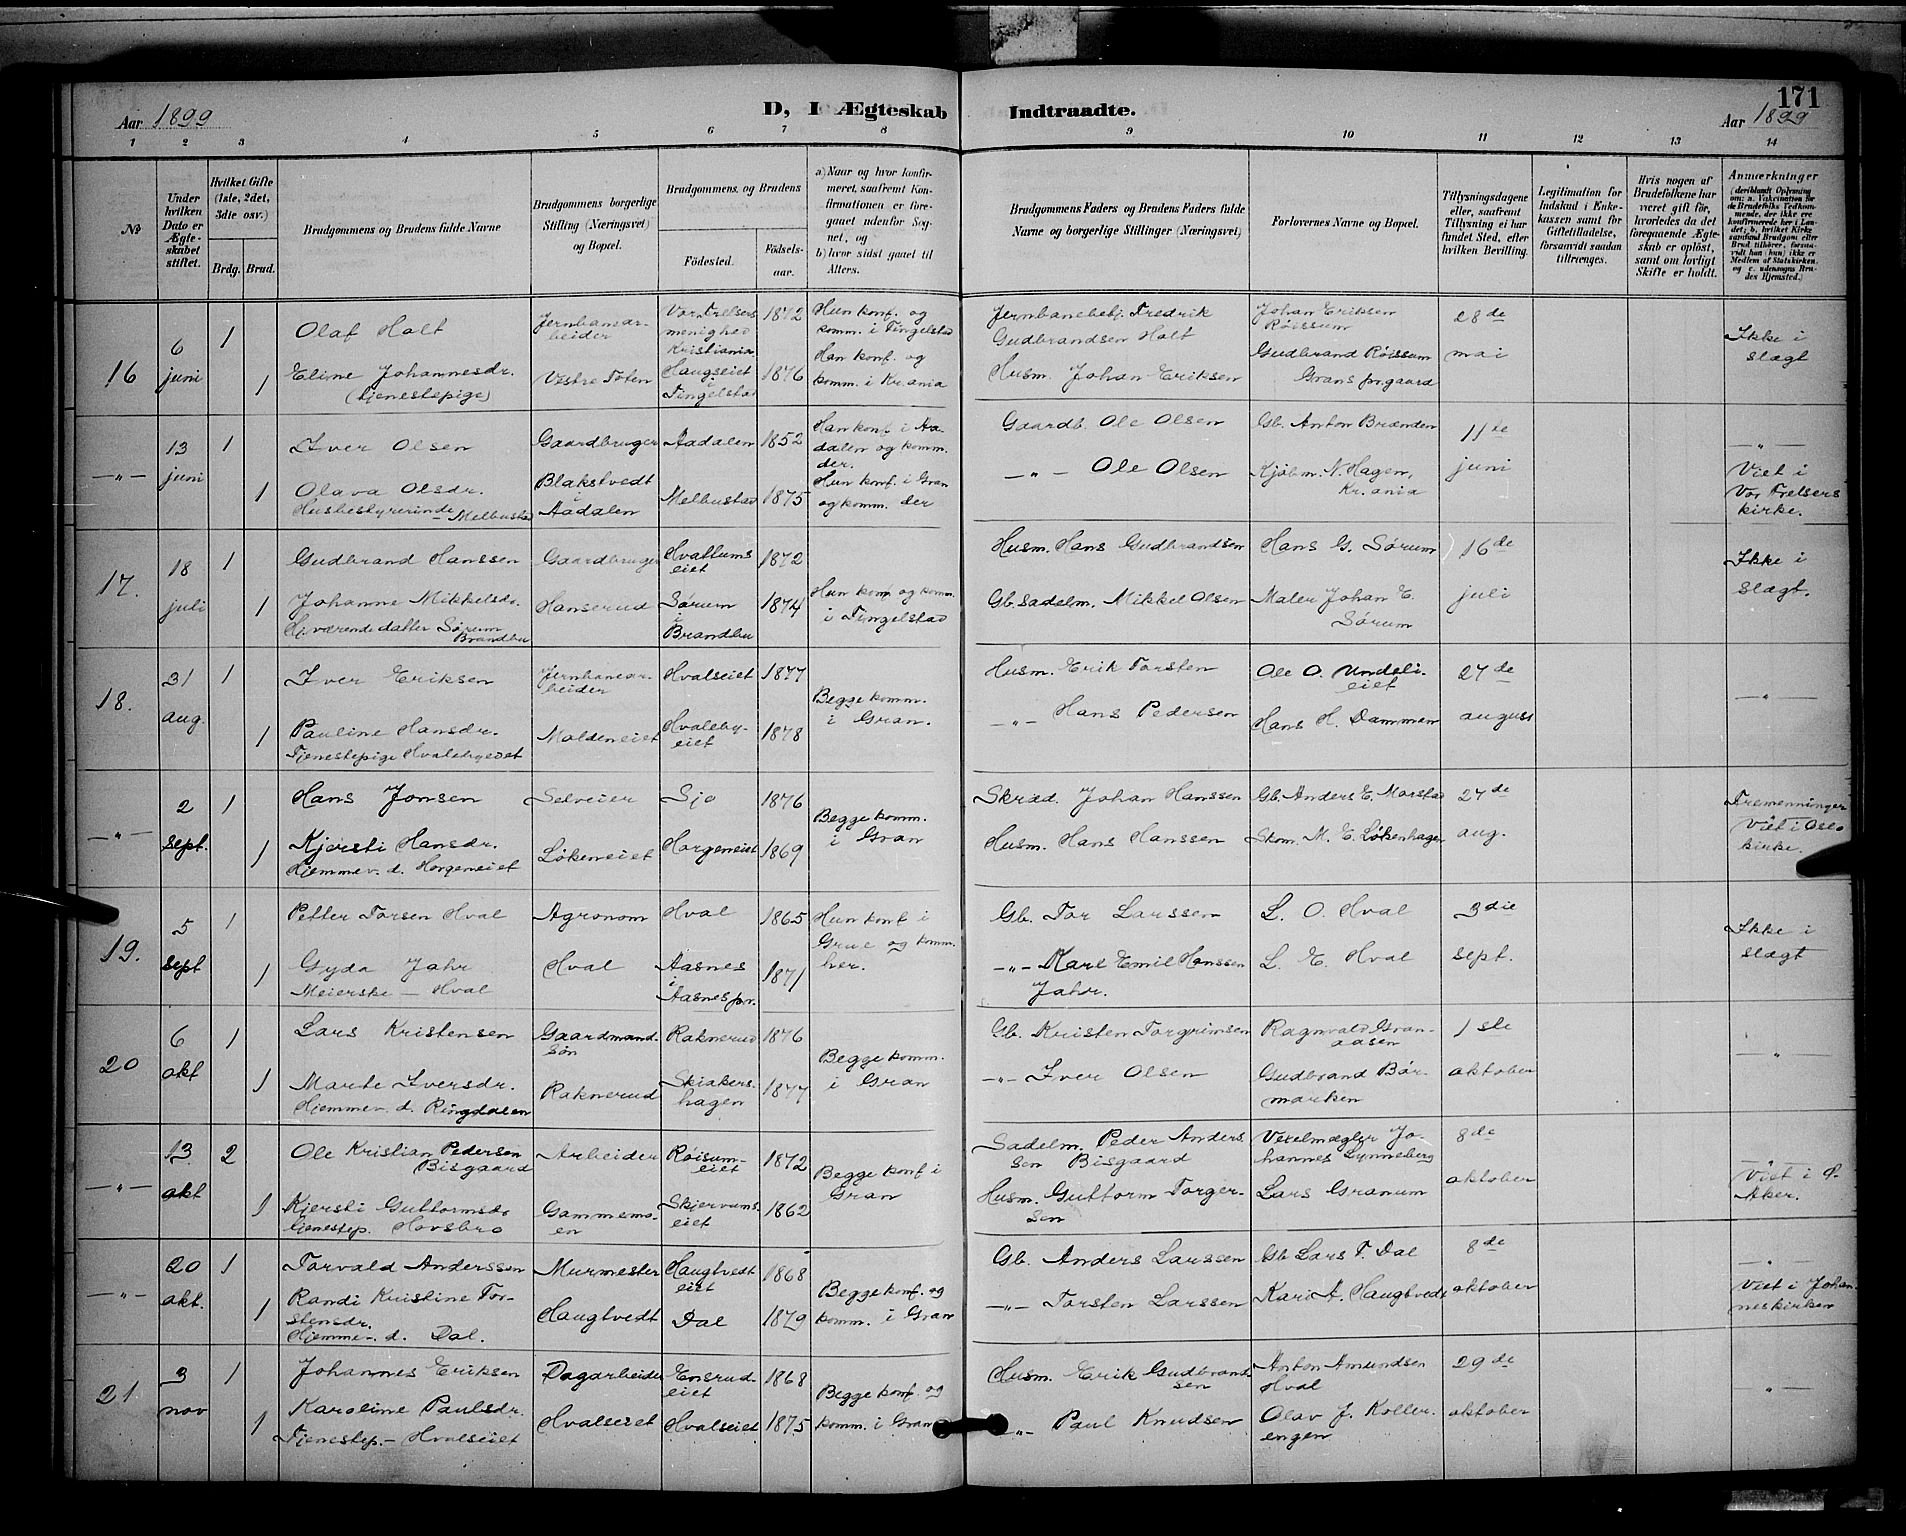 171
Aar 1899
D, I Ægteskab Indtraadte.
Aar 1899
1 2 3 4 5 6 7 8 9 10 11 12 13 14
No
Under hvilken Dato er Ægteskabet stiftet.
Hvilket Gifte (1ste, 2det, 3die osv.)
Brdg. Brud.
Brudgommens og Brudens fulde Navne
Brudgommens borgerlige Stilling (Næringsvei) og Bopæl.
Brudgommens, og Brudens
Fødested.
Fødsels-aar.
a) Naar og hvor konfirmeret, saafremt Konfirmationen er foregaaet udenfor Sognet, og
b) hvor sidst gaaet til Alters.
Brudgommens Faders og Brudens Faders fulde Navne og borgerlige Stillinger (Næringsvei)
Forlovernes Navne og Bopæl.
Tillysningsdagene eller, saafremt Tillysning ei har fundet Sted, efter hvilken Bevilling.
Legitimation for Indskud i Enkekassen samt for Giftetilladelse, forsaavidt saadan tiltrænges.
Hvis nogen af Brudefolkene har været gift før, hvorledes da det foregaaende Ægteskab er opløst, samt om lovligt Skifte er holdt.
Anmærkninger
(deriblandt Oplysning om: a. Vakcination for de Brudefolks Vedkommende, der ikke ere konfirmerede her i Landet; b. hvilket Kirkesamfund Brudgom eller Brud tilhører, forsaavidt han (hun) ikke er Medlem af Statskirken, og c. udensogns Brudes Hjemsted.)
16
6 juni
1
Olaf Holt
Jernbanear-
beider
Vor Frelsers
menighed
Kristiania
1872
Hun konf. og
komm. i Tingelstad
Jernbanebetj. Fredrik
Gudbrandsen Holt
Johan Eriksen
Røissum
28de
mai
Ikke i
slægt
1
Eline Johannesdr.
(tjenestepige)
Vestre Toten
Haugseiet
i
Tingelstad
1876
Han konf. og
komm. i Kr.ania
Husm. Johan Eriksen
Gudbrand Røissum
Grans prgaard
—"—
13 juni
1
Iver Olsen
Gaardbruger
Aadalen
1852
Han konf. i Aa-
dalen og komm.
der.
Gaardb. Ole Olsen
Gb. Anton Brænden
11te
juni
—"—
1
Olava Olsdr.
Husbestyrerinde — Melbustad
Blakstvedt
i
Aadalen
Melbustad
1875
Hun konf. i Gran
og komm. der
—"— Ole Olsen
Kjøbm. N. Hagen,
Kr.ania
Viet i
Vor Frelsers
kirke.
17.
18 juli
1
Gudbrand Hanssen
Gaardbruger
Hvattums
eiet
1872
Husm. Hans Gudbrandsen
Hans G. Sørum
16de
juli
Ikke i
slægt.
1
Johanne Mikkelsdr.
Hj.værende datter Sørum
Brandbu
Hanserud
Sørum
i
Brandbu
1874
Hun konf. og komm.
i Tingelstad
Gb. sadelm. Mikkel Olsen
Maler Johan E.
Sørum
18.
31 aug.
1
Iver Eriksen
Jernbanear-
beider
Hvalseiet
1877
Begge komm.
i Gran.
Husm. Erik Torsten
Ole O. Undeli-
eiet
27de
august
—"—
1
Pauline Hansdr.
Tjenestepige Hvalebyeiet
Moldeneiet
Hvaleby-
eiet
1878
—"— Hans Pedersen
Hans H. Dammen
—"—
2 sept.
1
Hans Jonsen
Selveier
Sjo
1876
Begge komm.
i Gran
Skræd. Johan Hanssen
Gb. Anders E. Morstad
27de
aug.
Tremenninger
Viet i Oslo
kirke.
1
Kjersti Hansdr.
Hjemmev. d. Horgeneiet
Løkeneiet
Horgeneiet
1869
Husm. Hans Hanssen
Skom. M. E. Løkenhagen
19.
5 sept
1
Petter Torsen Hval
Agronom
Hval
1865
Hun konf i
Grue og komm.
her.
Gb. Tor Larssen
L. O. Hval
3die
sept.
Ikke i
slægt
1
Gyda Jahr
Meierske — Hval
Hval
Aasnes
i
Aasnes pr.
1871
—"— Karl Emil Hanssen
Jahr.
L. E. Hval
20
6 okt
1
Lars Kristensen
Gaardmand-
søn
Raknerud
1876
Begge komm.
i Gran
Gb. Kristen Torgrimsen
Ragnvald Gran-
aasen
1ste
oktober
—"—
1
Marte Iversdr.
Hjemmev. d. Ringdalen
Raknerud
Skiakers-
hagen
1877
—"— Iver Olsen
Gudbrand Bør-
marken
—"—
13. okt
2
Ole Kristian Pedersen
Bisgaard
Arbeider
Røisum-
eiet
1872
Begge konf i
Gran
Sadelm. Peder Anders
sen Bisgaard
Vexelmægler Jo-
hannes Lynneberg
8de
oktober
—"—
Viet i Ø.
Aker.
1
Kjersti Guttormsdr
tjenestep. Hovsbro
Gammemo-
en
Skjervums-
eiet
1862
Husm. Guttorm Torger-
sen
Lars Granum
—"—
20 okt.
1
Torvald Anderssen
Murmester
Haugtvedt
eiet
1868
Begge konf. og
komm. i Gran
Gb. Anders Larssen
Gb Lars T. Dal
8de
oktober
—"—
Viet i Johan-
neskirken
1
Randi Kristine Tor-
stensdr.
Hjemmev. d. Dal.
Haugtvedt
Dal
1879
—"— Torsten Larssen
Kari A. Haugtvedt
21
3 nov
1
Johannes Eriksen
Dagarbeider
Ensrud-
eiet
1868
Begge konf. og
komm. i Gran
Husm. Erik Gudbrand-
sen
Anton Amundsen
Hval
29de
oktober
—"—
1
Karoline Paulsdr.
Tjenestep. — Hvalseiet
Hvalseiet
Hvalseiet
1875
—"— Paul Knudsen
Olav J. Koller-
engen